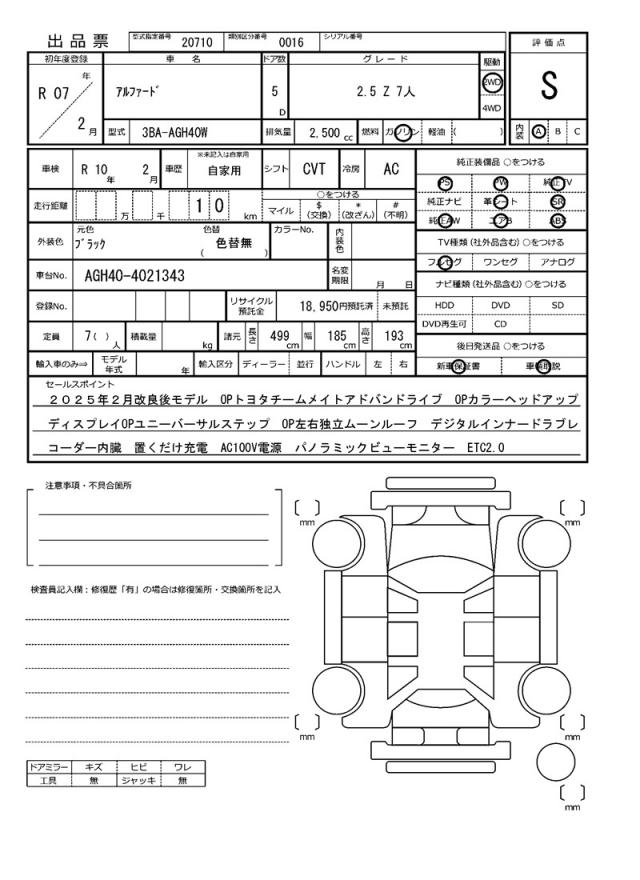 出品票 型式指定番号 20710 類別区分番号 0016 シリアル番号
評価点
S
初年度登録 車名 ドア数 グレード 駆動
R 07 年 2 月 アルファード 5 D 2.5 Z 7人 2WD 4WD
型式 3BA-AGH40W 排気量 2,500 cc 燃料 ガソリン 軽油 ( ) 内装 A B C
車検 R 10 年 2 月 車歴 ※未記入は自家用 自家用 シフト CVT 冷房 AC
純正装備品 ○をつける
PS PW 純正TV
純正ナビ 革シート SR
純正AW エアB ABS
走行距離 万 千 1 0 km ○をつける マイル $(交換) *(改ざん) #(不明)
TV種類(社外品含む)○をつける
フルセグ ワンセグ アナログ
外装色 元色 ブラック 色替 ( 色替無 ) カラーNo. 内装色
車台No. AGH40-4021343 名変期限 月 日
ナビ種類(社外品含む)○をつける
HDD DVD SD
DVD再生可 CD
登録No. リサイクル預託金 18,950円預託済 未預託
定員 7( ) 人 積載量 kg 諸元 長さ 499 cm 幅 185 cm 高さ 193 cm
後日発送品 ○をつける
新車保証書 車輌取説
輸入車のみ⇒ モデル年式 年 輸入区分 ディーラー 並行 ハンドル 左 右
セールスポイント
2025年2月改良後モデル OPトヨタチームメイトアドバンドライブ OPカラーヘッドアップ
ディスプレイOPユニーバーサルステップ OP左右独立ムーンルーフ デジタルインナードラブレ
コーダー内臓 置くだけ充電 AC100V電源 パノラミックビューモニター ETC2.0
注意事項・不具合箇所
検査員記入欄:修復歴「有」の場合は修復箇所・交換箇所を記入
mm
mm
mm
mm
mm
ドアミラー キズ ヒビ ワレ
工具 無 ジャッキ 無